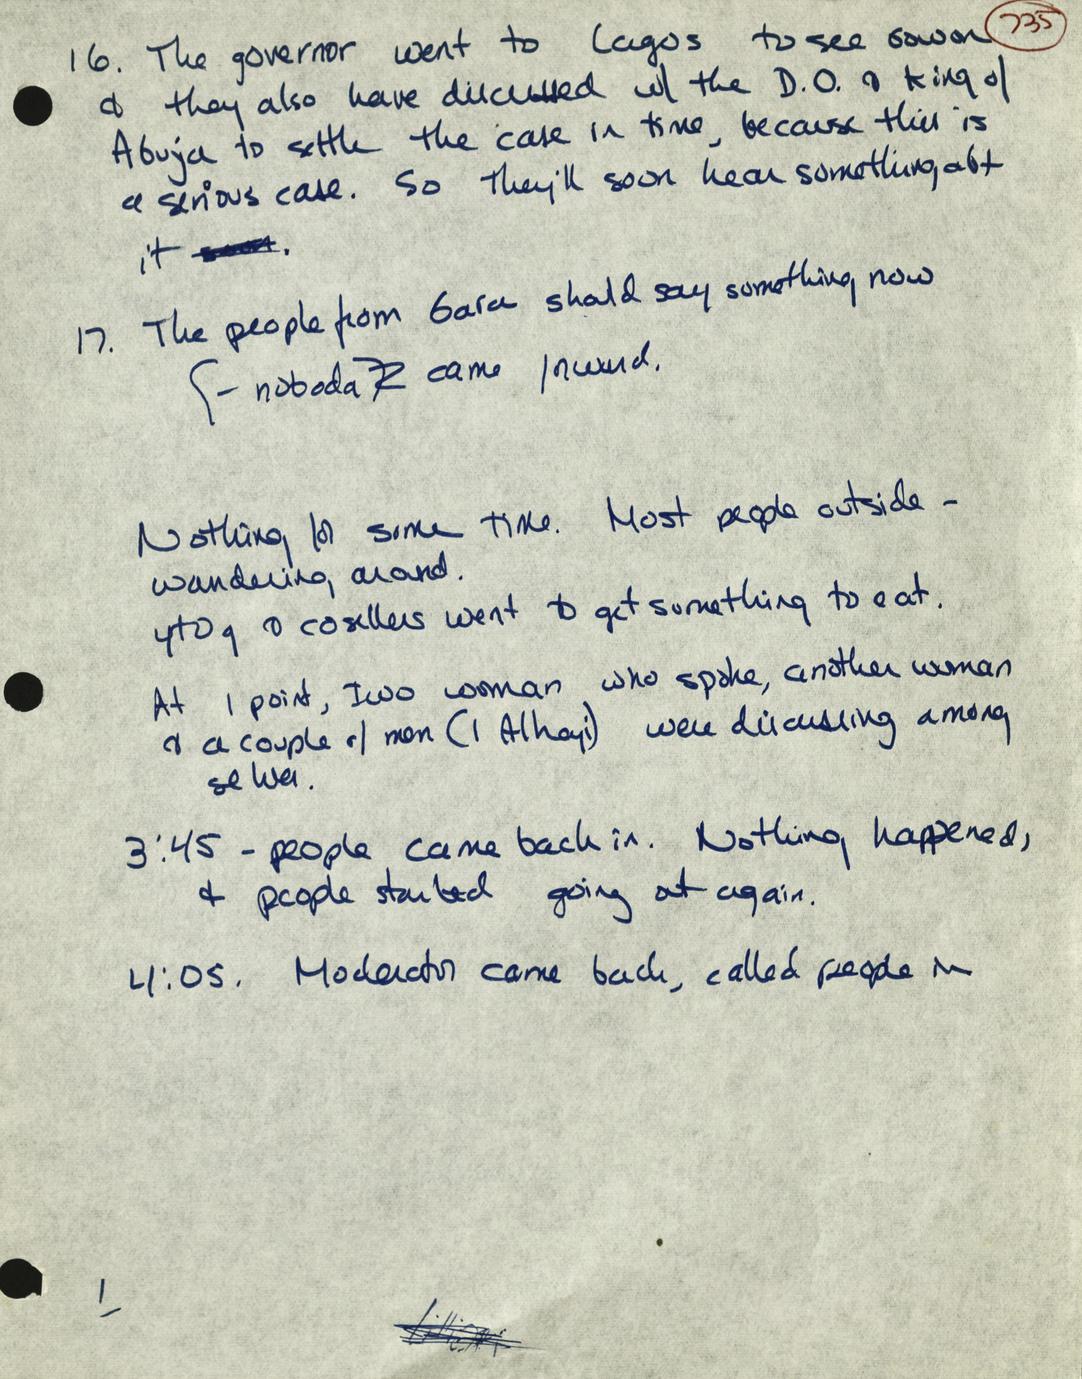 735
16. The governor went to Lagos to see Gowon
& they also have discussed w/ the D.O. & King of
Abuja to settle the case in time, because this is
a serious case. So they'll soon hear something abt
it soon.
17. The people from Gara should say something now
- nobody came forward.
Nothing for some time. Most people outside -
wandering around.
& cosellers went to get something to eat.
At 1 point, Iwo woman who spoke, another woman
& a couple of men (1 Alhaji) were discussing among
selves.
3:45 - people came back in. Nothing happened,
& people started going out again.
4:05. Moderator came back, called people in
1